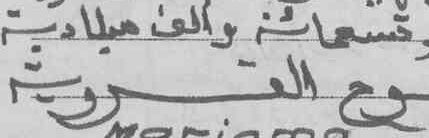 وتسعمائة وألف ميلادية
وح القروية
Mariama